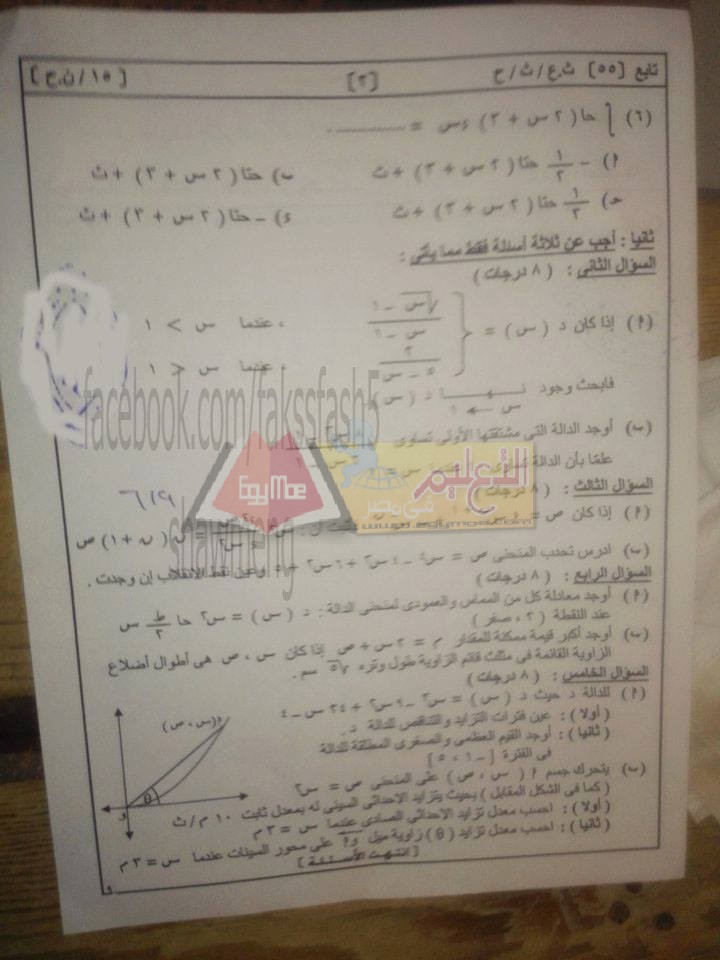 تابع [٥٥] ث.ع / ث / ح [٢] [ ١٥ / ن.ح ]
(٦) ∫ حا ( ٢ س + ٣ ) ءس = ............
٩- − ١/٢ حتا ( ٢ س + ٣ ) + ث ب) حتا ( ٢ س + ٣ ) + ث
حـ) ١/٢ حتا ( ٢ س + ٣ ) + ث ء) − حتا ( ٢ س + ٣ ) + ث
ثانيا : أجب عن ثلاثة أسئلة فقط مما يأتى :
السؤال الثانى : ( ٨ درجات )
(٩) إذا كان د ( س ) =
، عندما س > ١
، عندما س < ١
فابحث وجود نهـــا د ( س )
س ← ١
(ب) أوجد الدالة التى مشتقتها الأولى تساوى
علمًا بأن الدالة تساوى
السؤال الثالث : ( ٨ درجات )
(٩) إذا كان ص =
ن ( ن + ١ ) ص
(ب) ادرس تحدب المنحنى ص = س٤ − ٤ س٣ + ٦ س٢ + ٥ وعين نقط الانقلاب إن وجدت .
السؤال الرابع : ( ٨ درجات )
(٩) أوجد معادلة كل من المماس والعمودى لمنحنى الدالة : د ( س ) = س٢ حا ط/٢ س
عند النقطة ( ٢ ، صفر )
(ب) أوجد أكبر قيمة ممكنة للمقدار م = ٢ س + ص إذا كان س ، ص هى أطوال أضلاع
الزاوية القائمة فى مثلث قائم الزاوية طول وتره √٥ سم .
السؤال الخامس : ( ٨ درجات )
(٩) للدالة د حيث د ( س ) = س٣ − ٩ س٢ + ٢٤ س − ٤
( أولا ) : عين فترات التزايد والتناقص للدالة د .
( ثانيا ) : أوجد القيم العظمى والصغرى المطلقة للدالة
فى الفترة [ −١ ، ٥ ]
(ب) يتحرك جسم ٩ ( س ، ص ) على المنحنى ص = س٢
( كما فى الشكل المقابل ) بحيث يتزايد الاحداثى السينى له بمعدل ثابت ١٠ م / ث
( أولا ) : احسب معدل تزايد الاحداثى الصادى عندما س = ٣ م
( ثانيا ) : احسب معدل تزايد (θ) زاوية ميل و٩ على محور السينات عندما س = ٣ م
[ انتهت الأسئلة ]
٩(س ، ص)
θ
و
٦١٩
facebook.com/takssfash5
EgyMoe
التعليم
فى مصر
www.egymoe.com